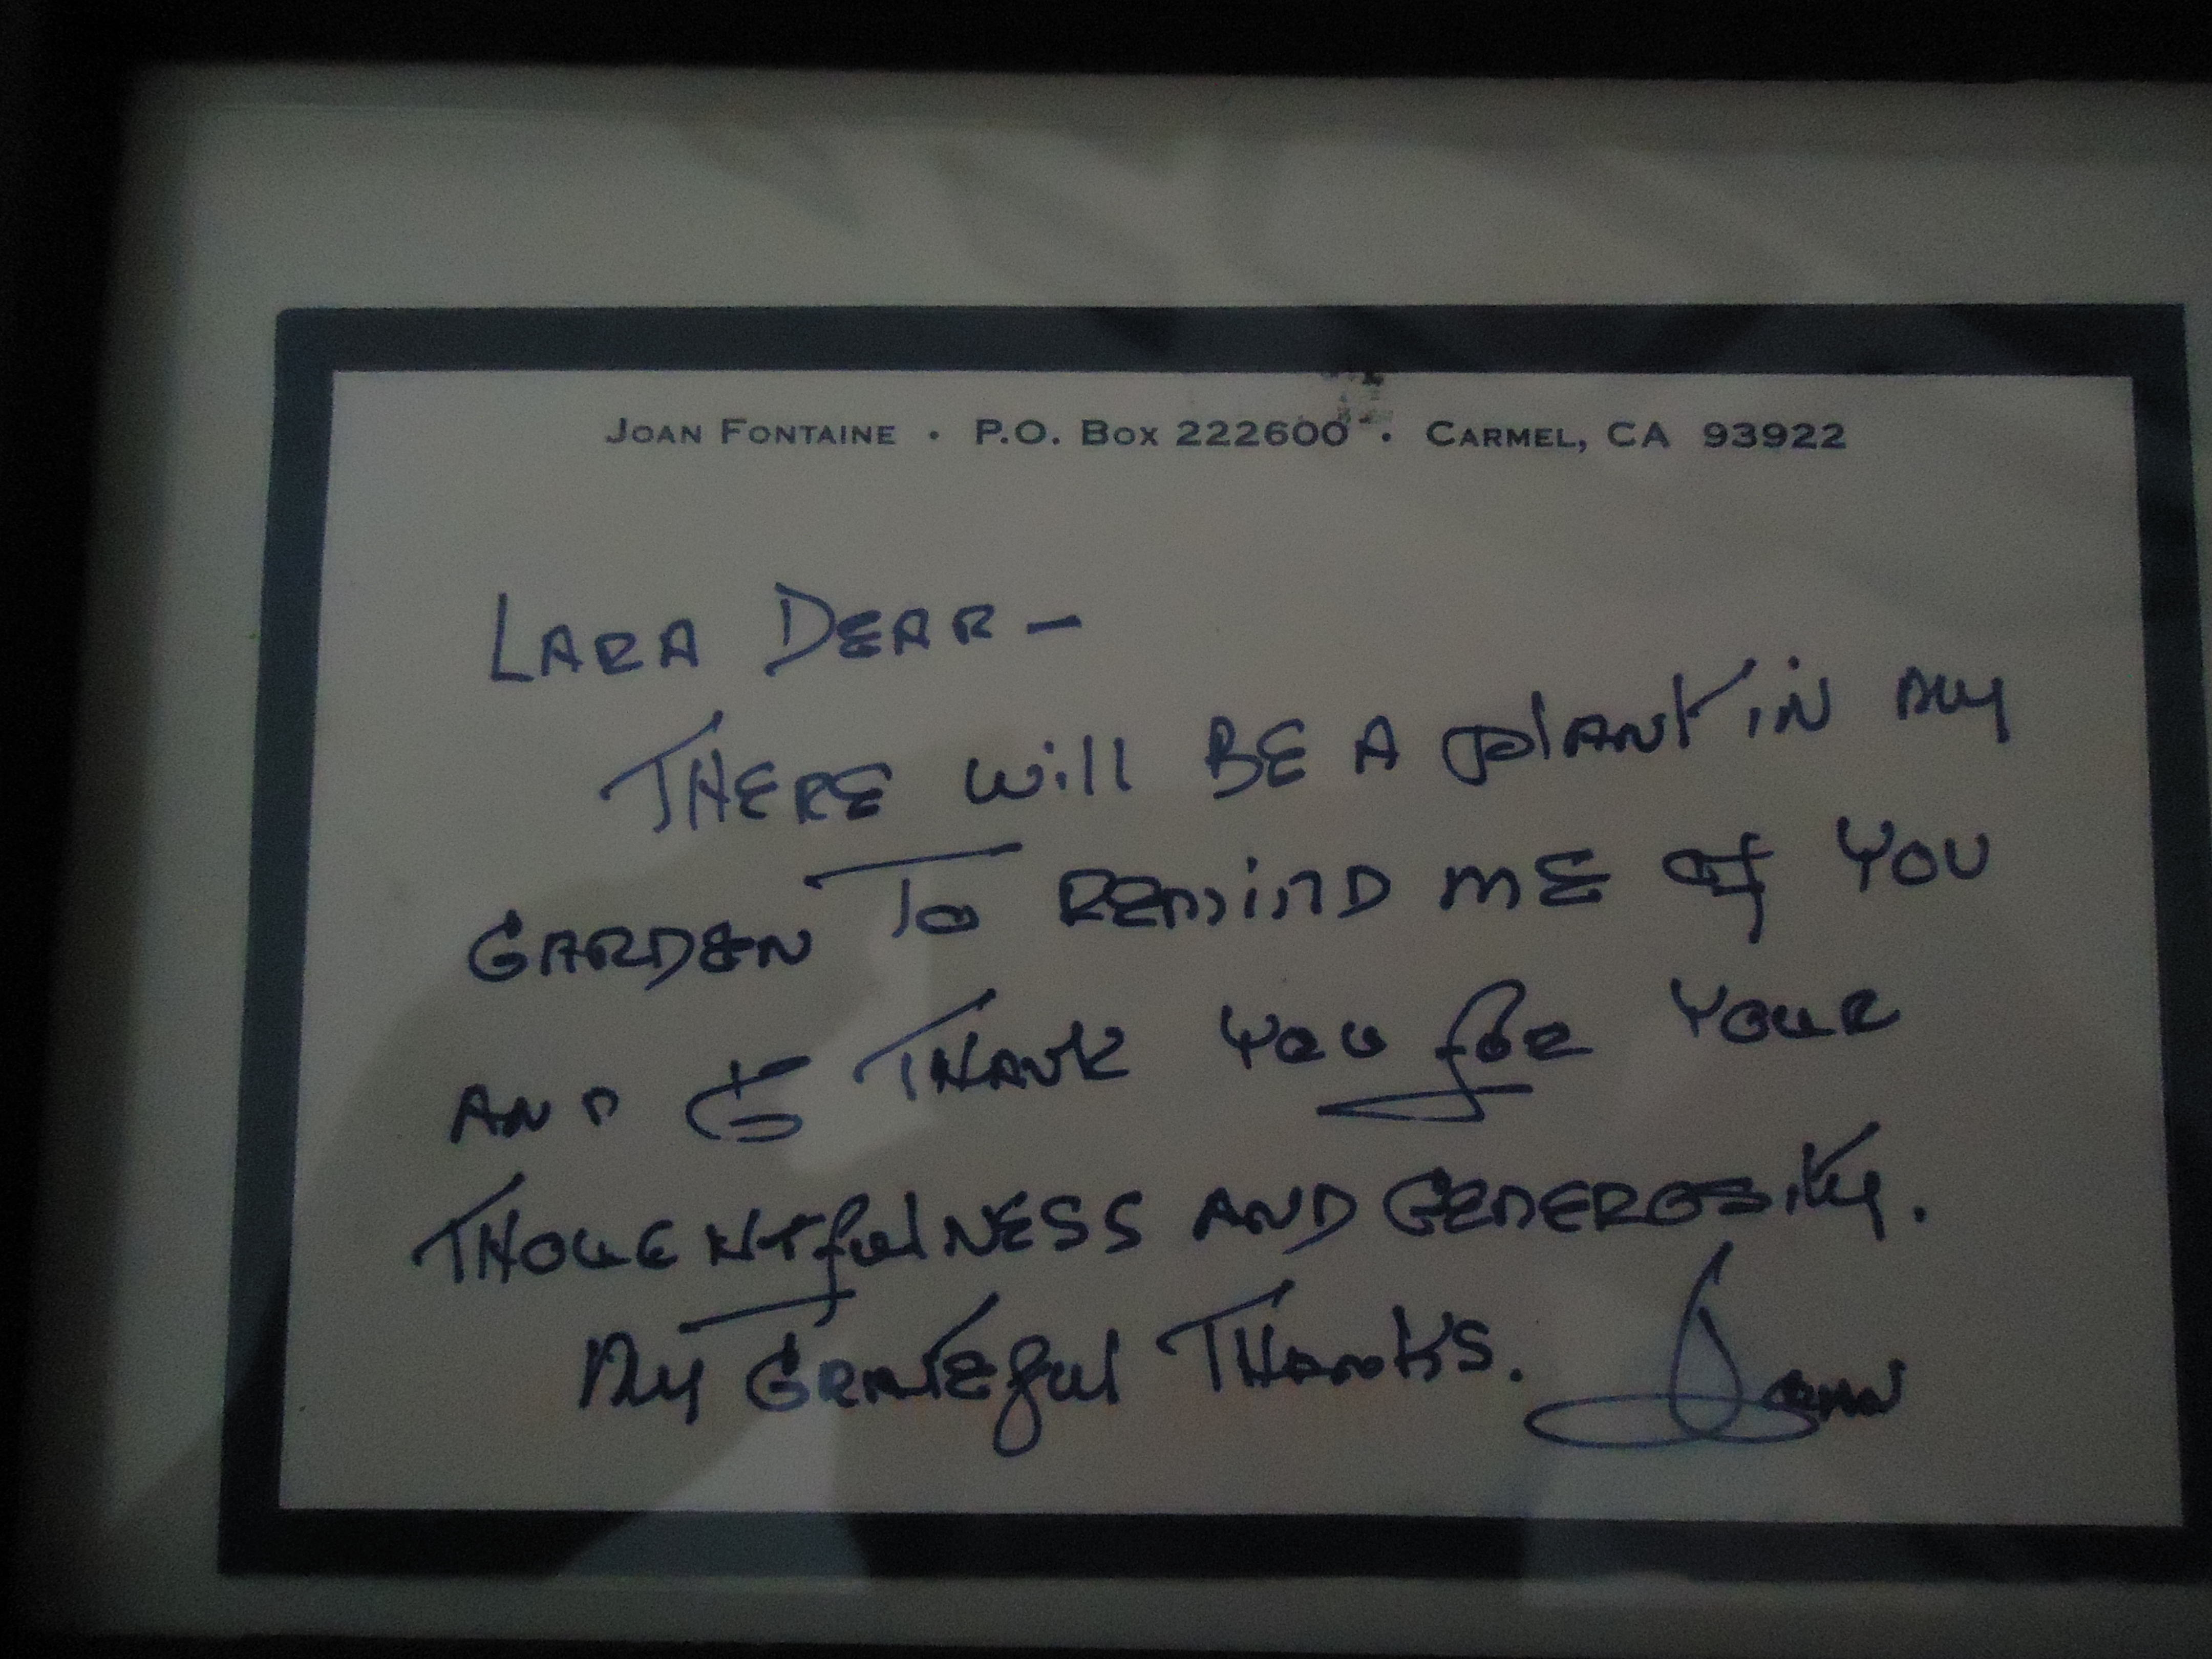 Joan Fontaine • P.O. Box 222600 • Carmel, CA 93922
LARA DEAR –
THERE will BE A plANT iN my
GARDEN To REMIND ME of YOU
AND to THANK YOU for YOUR
THOUGHTfulNESS AND GENEROSITY.
My GRATEful THANKS. Joan